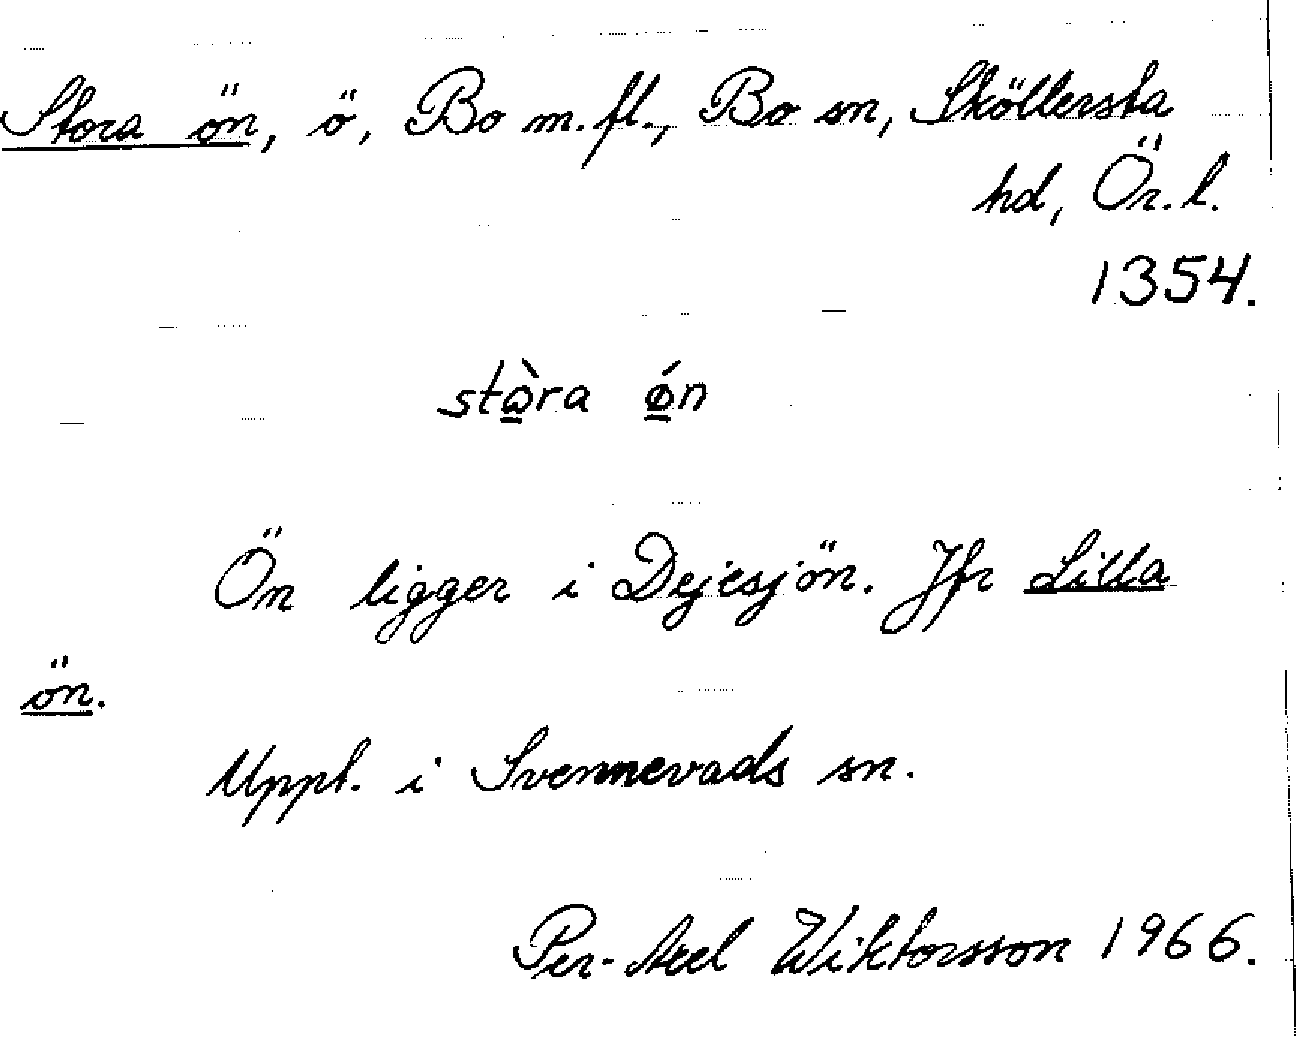 Stora ön, ö, Bo m.fl., Bo sn, Sköllersta
hd, Ör.l.
1354.
stɷ̲̀ra ǿ̲n
Ön ligger i Dejesjön. Jfr Lilla
ön.
Uppt. i Svennevads sn.
Per-Axel Wiktorsson 1966.